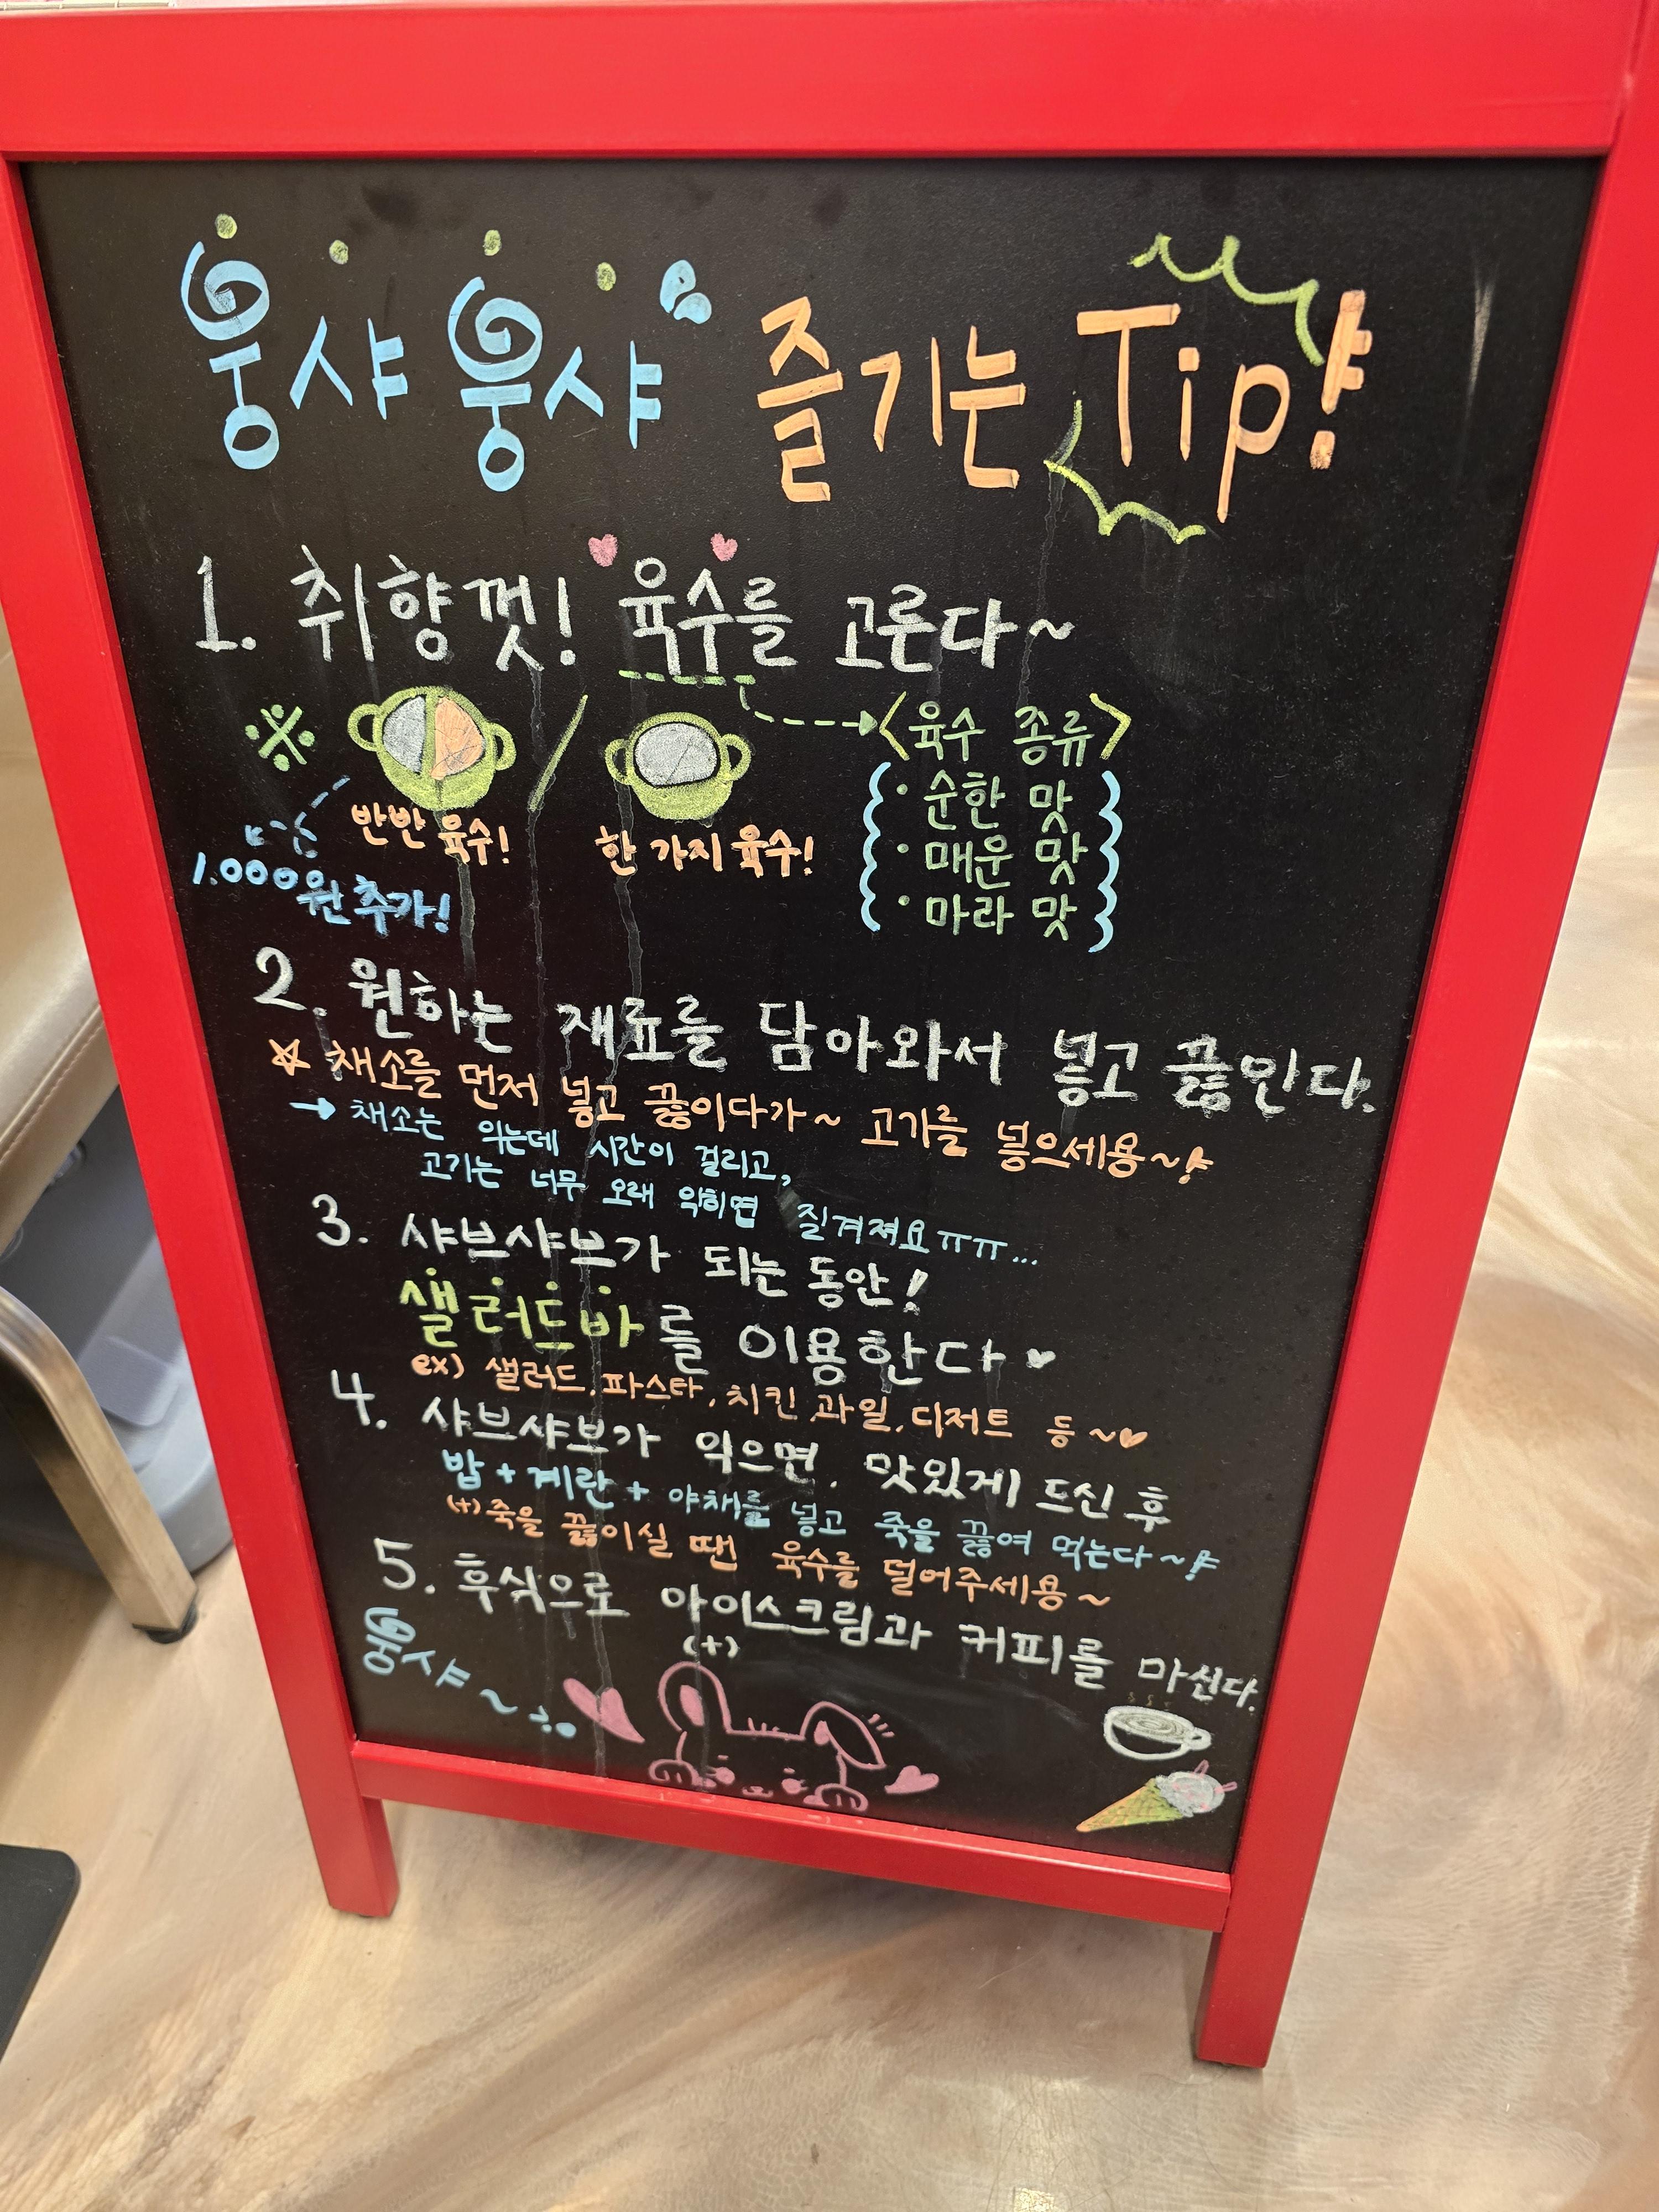 웅샤웅샤 즐기는 Tip!
1. 취향껏! 육수를 고른다~
※ / <육수 종류>
반반 육수! 한 가지 육수!
1.000원 추가!
· 순한 맛
· 매운 맛
· 마라 맛
2. 원하는 재료를 담아와서 넣고 끓인다.
☆ 채소를 먼저 넣고 끓이다가~ 고기를 넣으세용~!
→ 채소는 익는데 시간이 걸리고,
고기는 너무 오래 익히면 질겨져요ㅠㅠ...
3. 샤브샤브가 되는 동안!
샐러드바를 이용한다♥
ex) 샐러드, 파스타, 치킨, 과일, 디저트 등~♥
4. 샤브샤브가 익으면, 맛있게 드신 후
밥+계란+야채를 넣고 죽을 끓여 먹는다~!
(+) 죽을 끓이실 땐 육수를 덜어주세용~
5. 후식으로 아이스크림과 커피를 마신다.
(+)
웅샤~